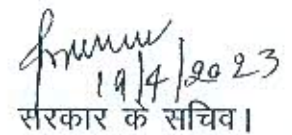 19/4/2023
सरकार के सचिव।